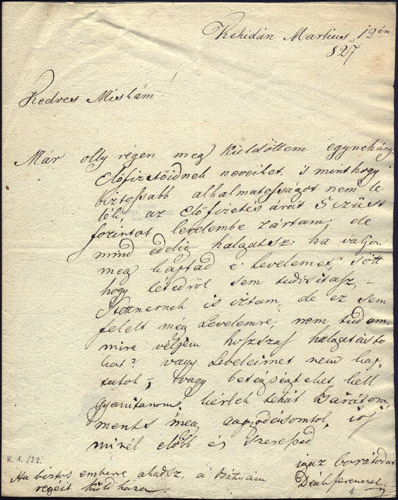 Kehidán Martius 12én
827
Kedves Miskám!
Már olly régen meg küldöttem egynehány
Előfizetőidnek neveiket, 's minthogy
biztossabb alkalmatosságot nem le
lék, az Előfizetés árát 5 ezüst
forintot levelembe zártam, de
mind eddig halgatsz: ha valjon
meg kaptad é levelemet, sőtt
hogy létedről sem tudósitasz, –
Stettnernek is irtam, de ez sem
felelt még Levelemre, nem tudom
mire véljem hosszas halgatásto
kat? vagy Leveleimet nem kap
tátok, vagy betegségteket kell
gyanitanom, kérlek tehát Barátom
ments meg aggódásomtol, irj
minél előbb és szeressed
igaz barátodat
Deák Ferencet
Ha biztos emberre akadsz, a
régeit küld haza
K. 1. /22.